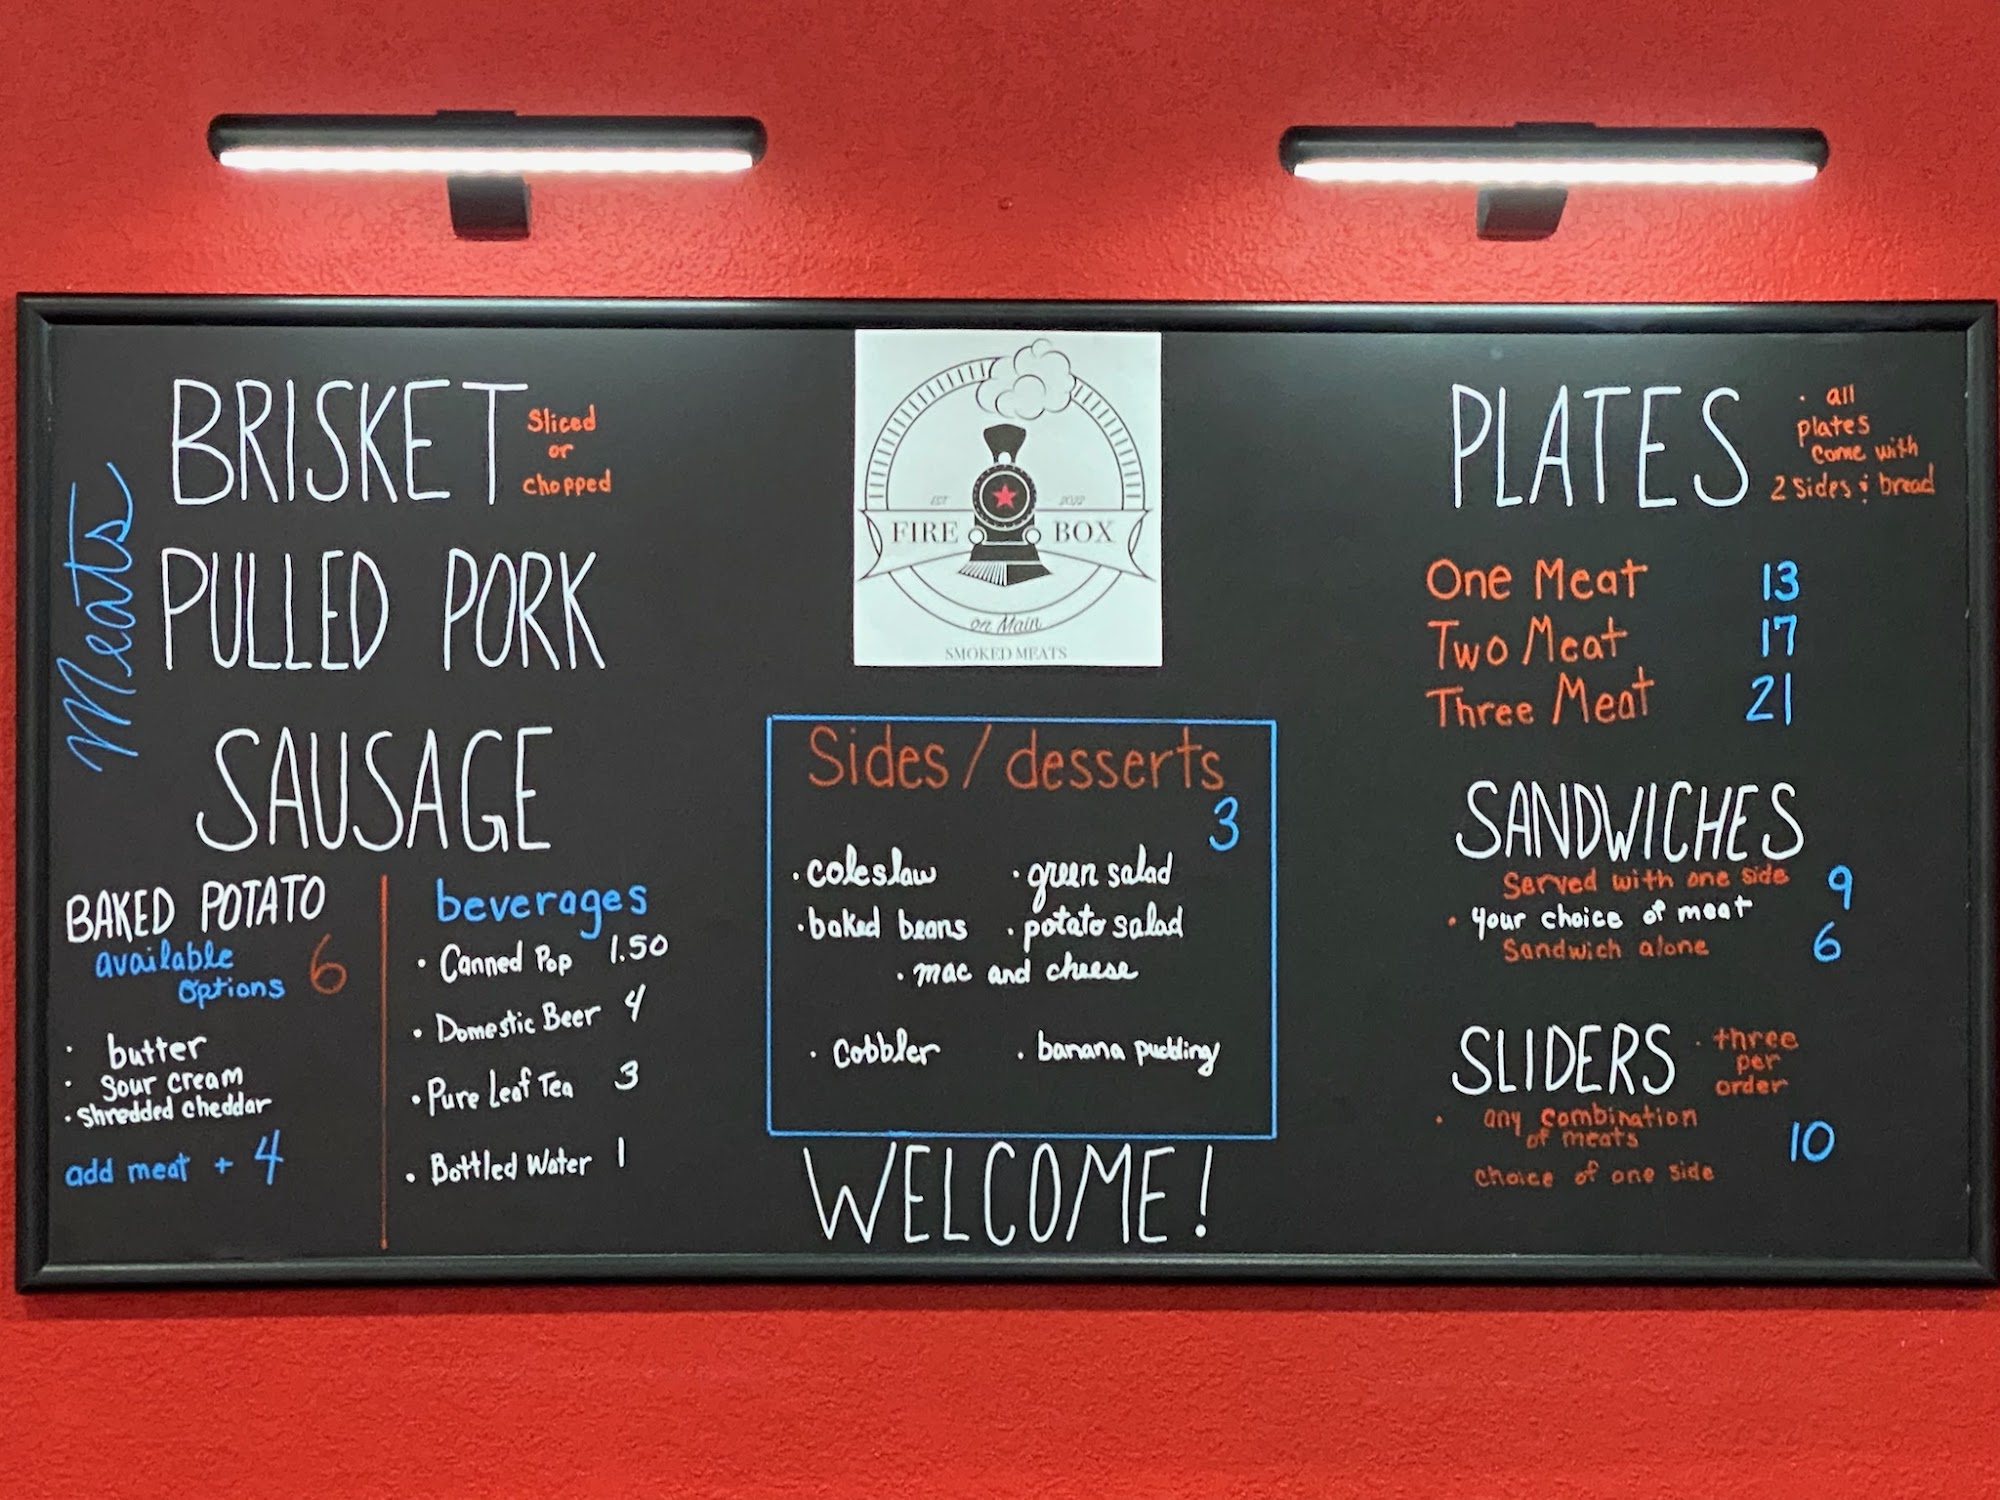 Meats
BRISKET
Sliced
or
chopped
PULLED PORK
SAUSAGE
BAKED POTATO
available
options
6
· butter
· sour cream
· shredded cheddar
add meat + 4
beverages
· Canned Pop 1.50
· Domestic Beer 4
· Pure Leaf Tea 3
· Bottled Water 1
EST 2022
FIRE BOX
on Main
SMOKED MEATS
Sides / desserts
3
· coleslaw · green salad
· baked beans · potato salad
· mac and cheese
· Cobbler · banana pudding
WELCOME!
PLATES
· all
plates
come with
2 sides & bread
One Meat 13
Two Meat 17
Three Meat 21
SANDWICHES
Served with one side 9
· your choice of meat
Sandwich alone 6
SLIDERS
· three
per
order
· any combination
of meats
10
choice of one side